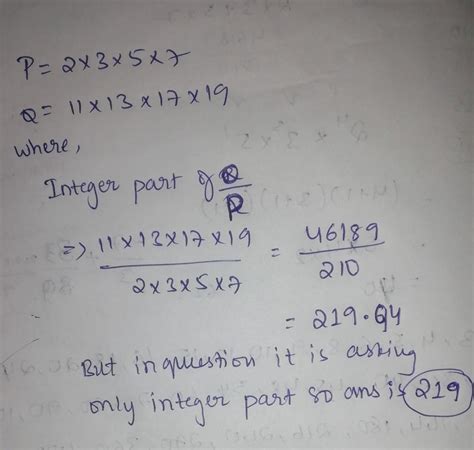 P = 2×3×5×7
Q = 11×13×17×19
where,
Integer part of Q/P
⇒ 11×13×17×19 / 2×3×5×7 = 46189 / 210
= 219.94
But in question it is asking
only integer part so ans is 219